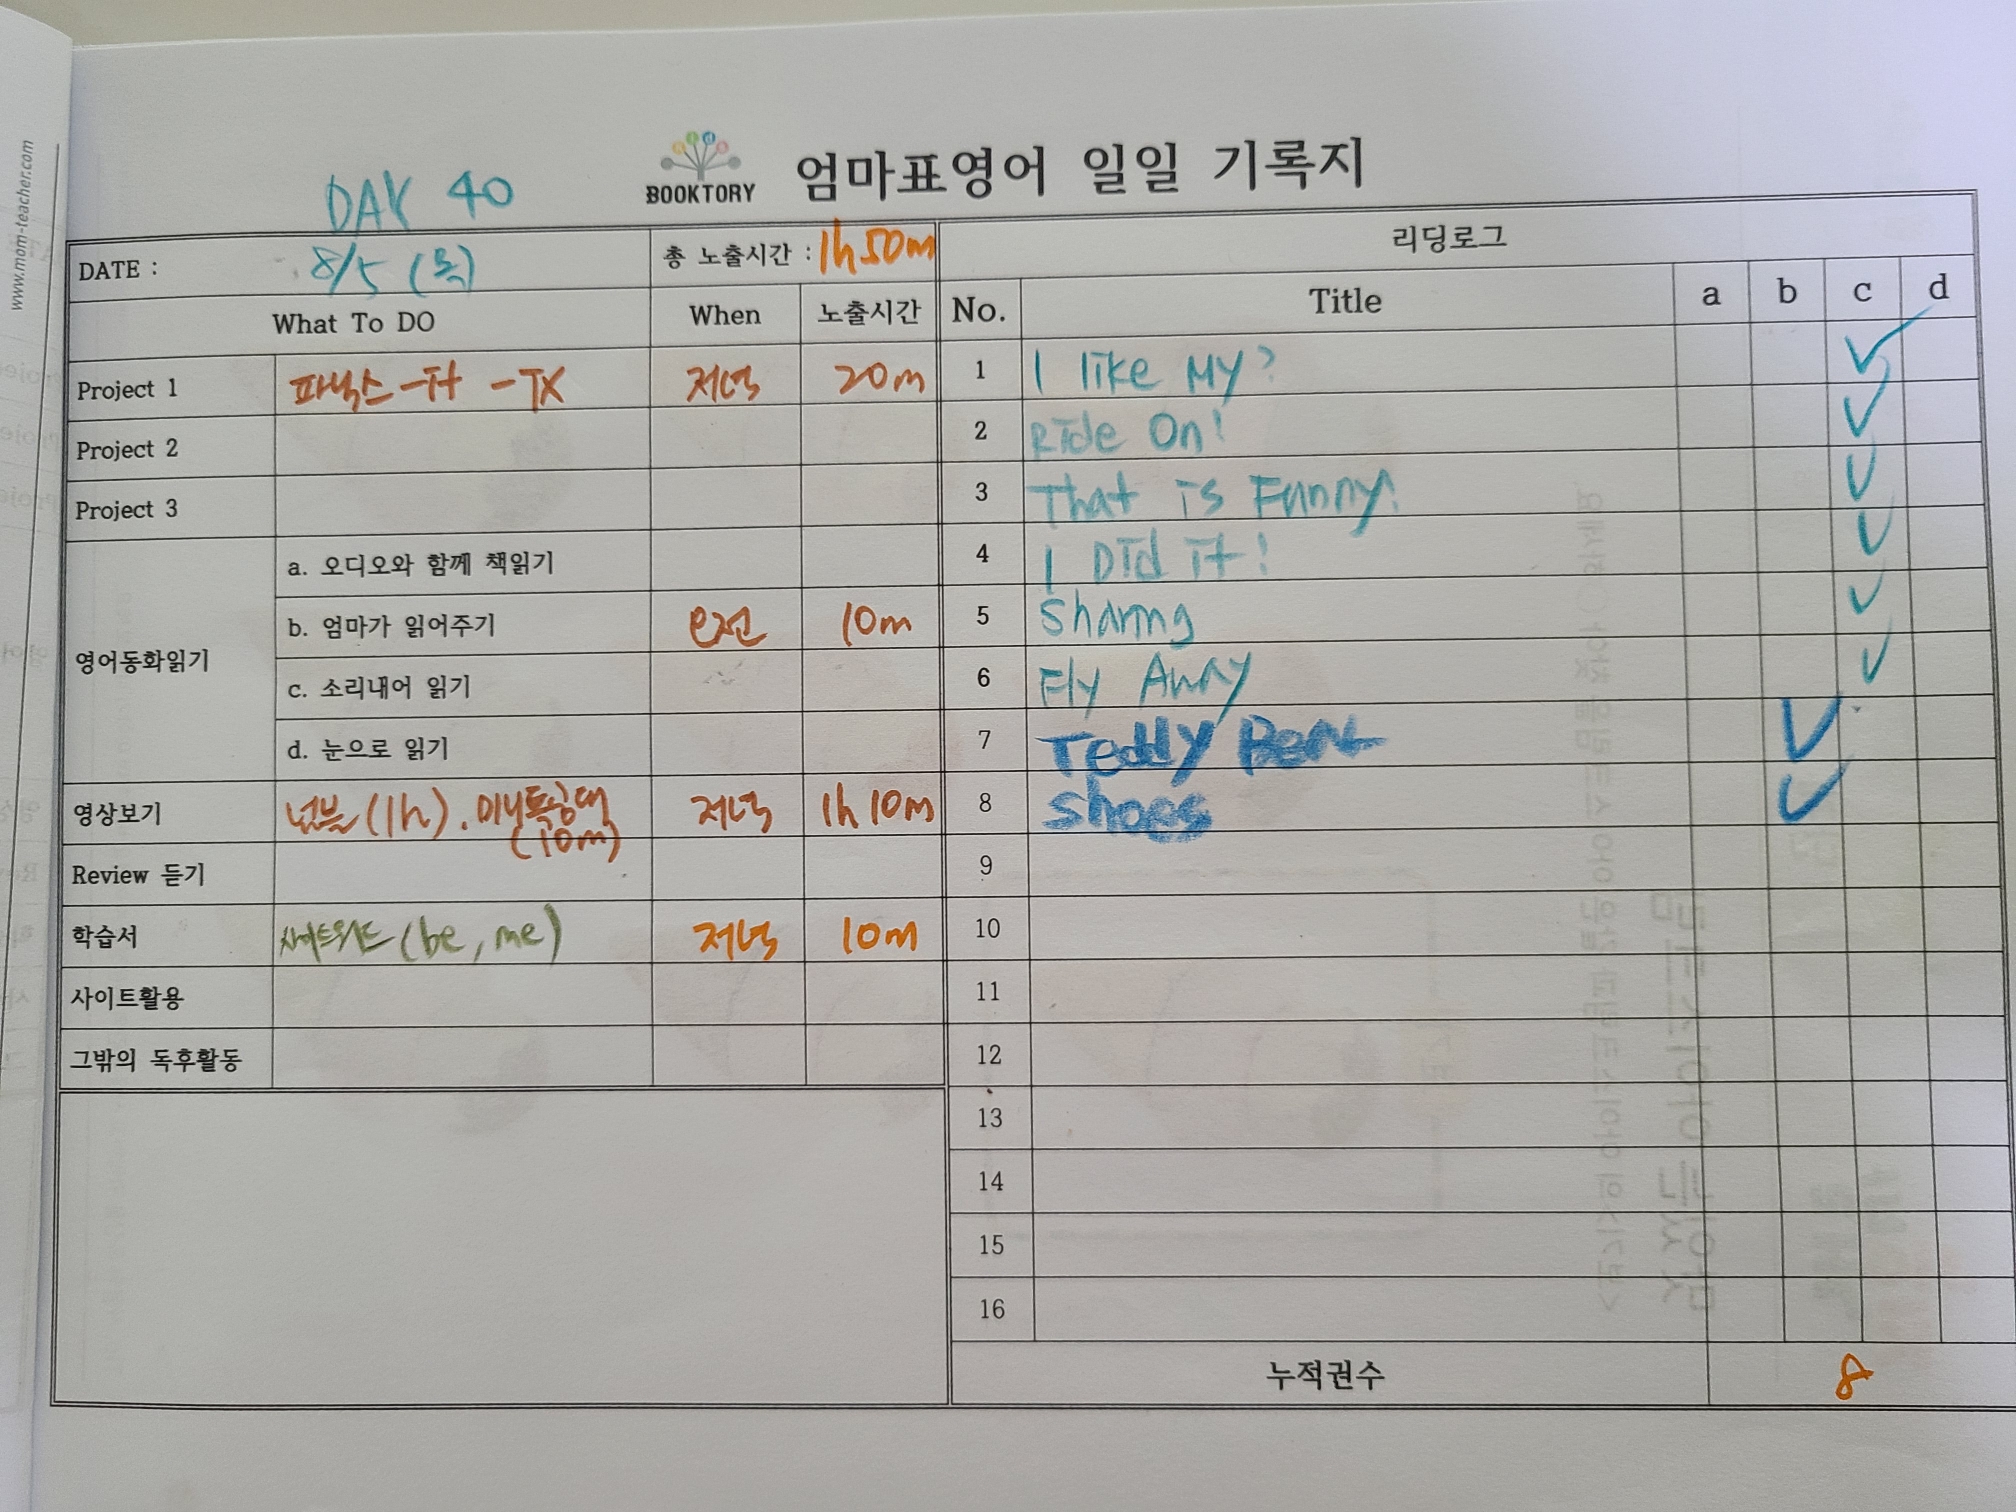 www.mom-teacher.com
BOOKTORY 엄마표영어 일일 기록지
DAY 40
DATE : 8/5 (목) 총 노출시간 : 1h50m
What To DO When 노출시간
Project 1 파닉스 -It -IX 저녁 20m
Project 2
Project 3
영어동화읽기
a. 오디오와 함께 책읽기
b. 엄마가 읽어주기 오전 10m
c. 소리내어 읽기
d. 눈으로 읽기
영상보기 넘블(1h). 미니특공대 저녁 1h 10m
(10m)
Review 듣기
학습서 사이트워드(be, me) 저녁 10m
사이트활용
그밖의 독후활동
리딩로그
No. Title a b c d
1 I like My?
2 Ride On!
3 That is Funny!
4 I Did it!
5 Sharing
6 Fly Away
7 Teddy Bear
8 Shoes
9
10
11
12
13
14
15
16
누적권수 8